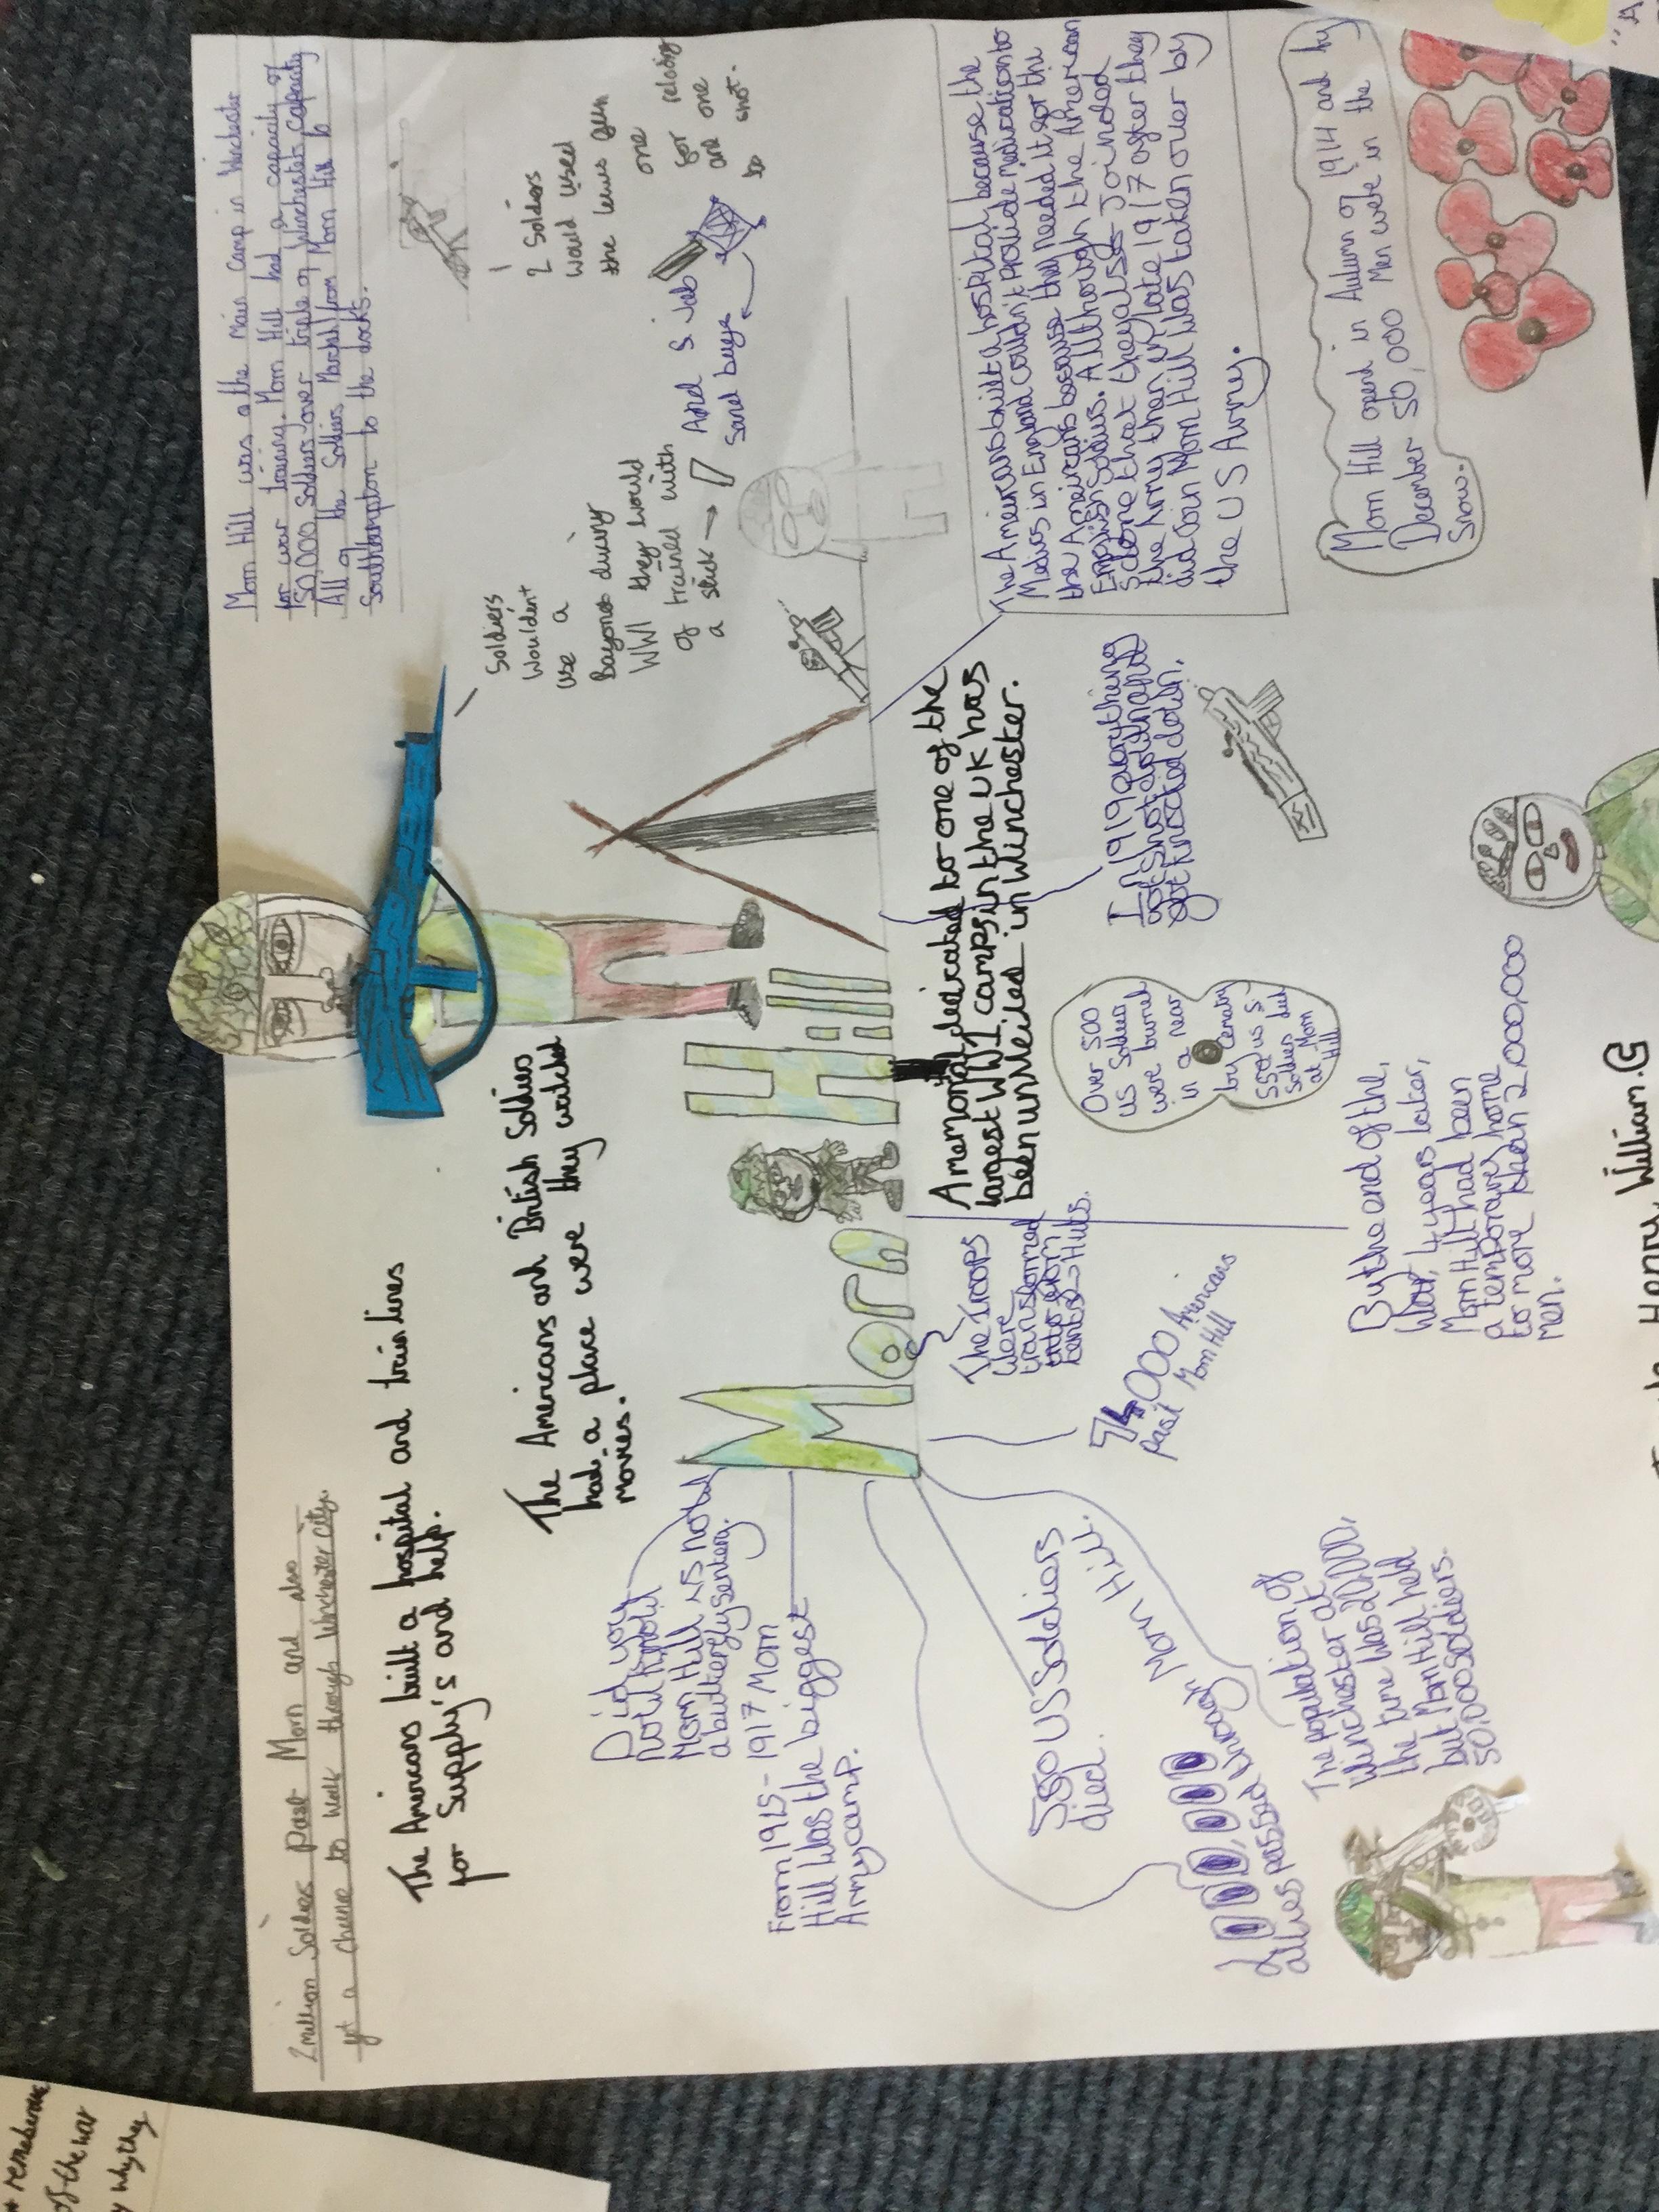 2 million Soldiers past Morn and also
get a chance to walk through Winchester city.
The Americans built a hospital and train lines
for Supply's and help.
The Americans and British Soldiers
had a place were they watched
movies.
Morn Hill was a the Main Camp in Winchester
for war training. Morn Hill had a capacity of
50,000 Soldiers over triple of Winchester capacity
All of the Soldiers Marched from Morn Hill to
Southhampton to the docks.
Soldiers
wouldent
use a
Bayonet during
WW1 they would
of trained with
a stick →
And S
Sand bags
2 Soldiers
would used
the lewis gun
one
for reloding
and one
to shot.
Did you
now? know
Morn Hill is now
a butterfly sentery.
From 1915 - 1917 Morn
Hill was the biggest
Army camp.
Morn Hill
550 US Soldiers
died.
2,000,000
allies passed through Morn Hill.
The population of
Winchester at
the time was 20,000,
but Morn Hill held
50,000 soldiers.
The Troops
were
transformed
into from
tents → Huts.
74,000 Americans
past Morn Hill
A memorial deicated to one of the
largest WW1 camps in the UK has
been unveiled in Winchester.
Over 500
US Soldiers
were buried
in a near
by cematry
550 us $
Soldiers died
at Morn
Hill
In 1919 everything
got shot down and
got knocked down.
By the end of the,
War, 4 years later,
Morn Hill had been
a temporary home
to more than 2,000,000
men.
The Americans built a hospital because the
Medics in England couldn't provide medication to
the Americans because they needed it for the
English Soldies. Allthough the American
S done that they alsso Joinded
the Army than in late 1917 after they
did Join Morn Hill Was taken over by
the US Army.
Morn Hill opend in Autumn of 1914 and by
December 50,000 Men were in the
Snow.
Henry William.
remeberence
of the war
why they